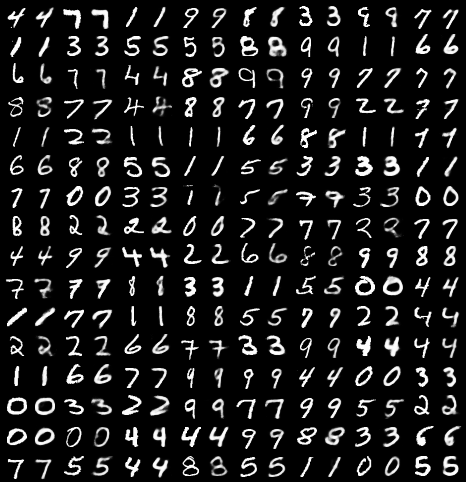 4 4 7 7 1 1 9 9 8 8 3 3 9 9 7 7
1 1 3 3 5 5 5 5 8 8 9 9 1 1 6 6
6 6 7 7 4 4 8 8 9 9 9 9 7 7 7 7
8 8 7 7 4 4 8 8 7 7 9 9 2 2 7 7
1 1 2 2 1 1 1 1 6 6 8 8 1 1 7 7
6 6 8 8 5 5 1 1 5 5 3 3 3 3 1 1
7 7 0 0 3 3 1 1 5 5 7 7 3 3 0 0
8 8 2 2 2 2 0 0 7 7 7 7 2 2 7 7
4 4 9 9 4 4 2 2 6 6 8 8 9 9 8 8
7 7 7 7 8 8 3 3 1 1 5 5 0 0 4 4
1 1 7 7 1 1 8 8 5 5 7 9 2 2 4 4
2 2 2 2 6 6 7 7 3 3 9 9 4 4 4 4
1 1 6 6 7 7 9 9 9 9 4 4 0 0 3 3
0 0 3 3 2 2 9 9 7 7 9 9 5 5 2 2
0 0 0 0 4 4 4 4 9 9 8 8 3 3 6 6
7 7 5 5 4 4 8 8 5 5 1 1 0 0 5 5